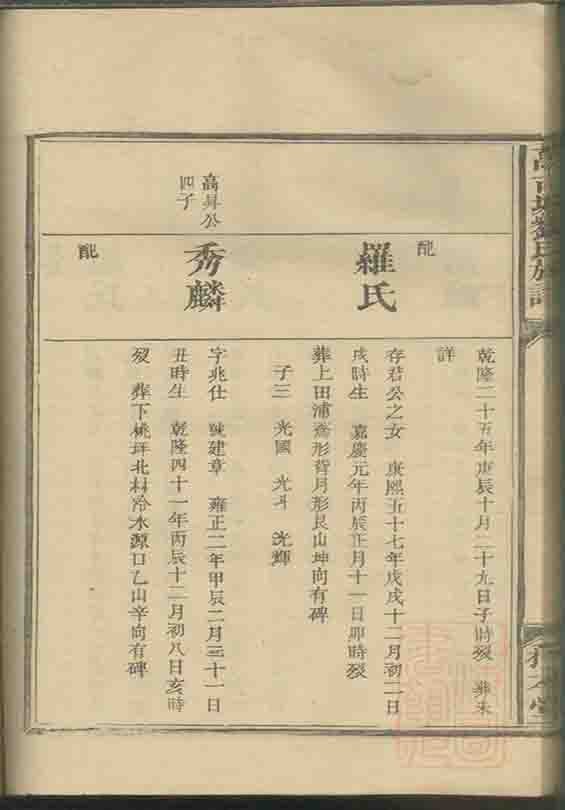 氏族譜
乾隆二十五年庚辰十月二十九日子時歿 葬未
詳
配
羅氏
存君公之女 康熙五十七年戊戌十二月初二日
戌時生 嘉慶元年丙辰正月十一日卯時歿
葬上田浦鳶形背月形艮山坤向有碑
子三 光國 光斗 光輝
高昇公
四子
秀麟
字兆仕 號建章 雍正二年甲辰二月三十一日
丑時生 乾隆四十一年丙辰十二月初八日亥時
歿 葬下桃坪北材冷水源口乙山辛向有碑
配